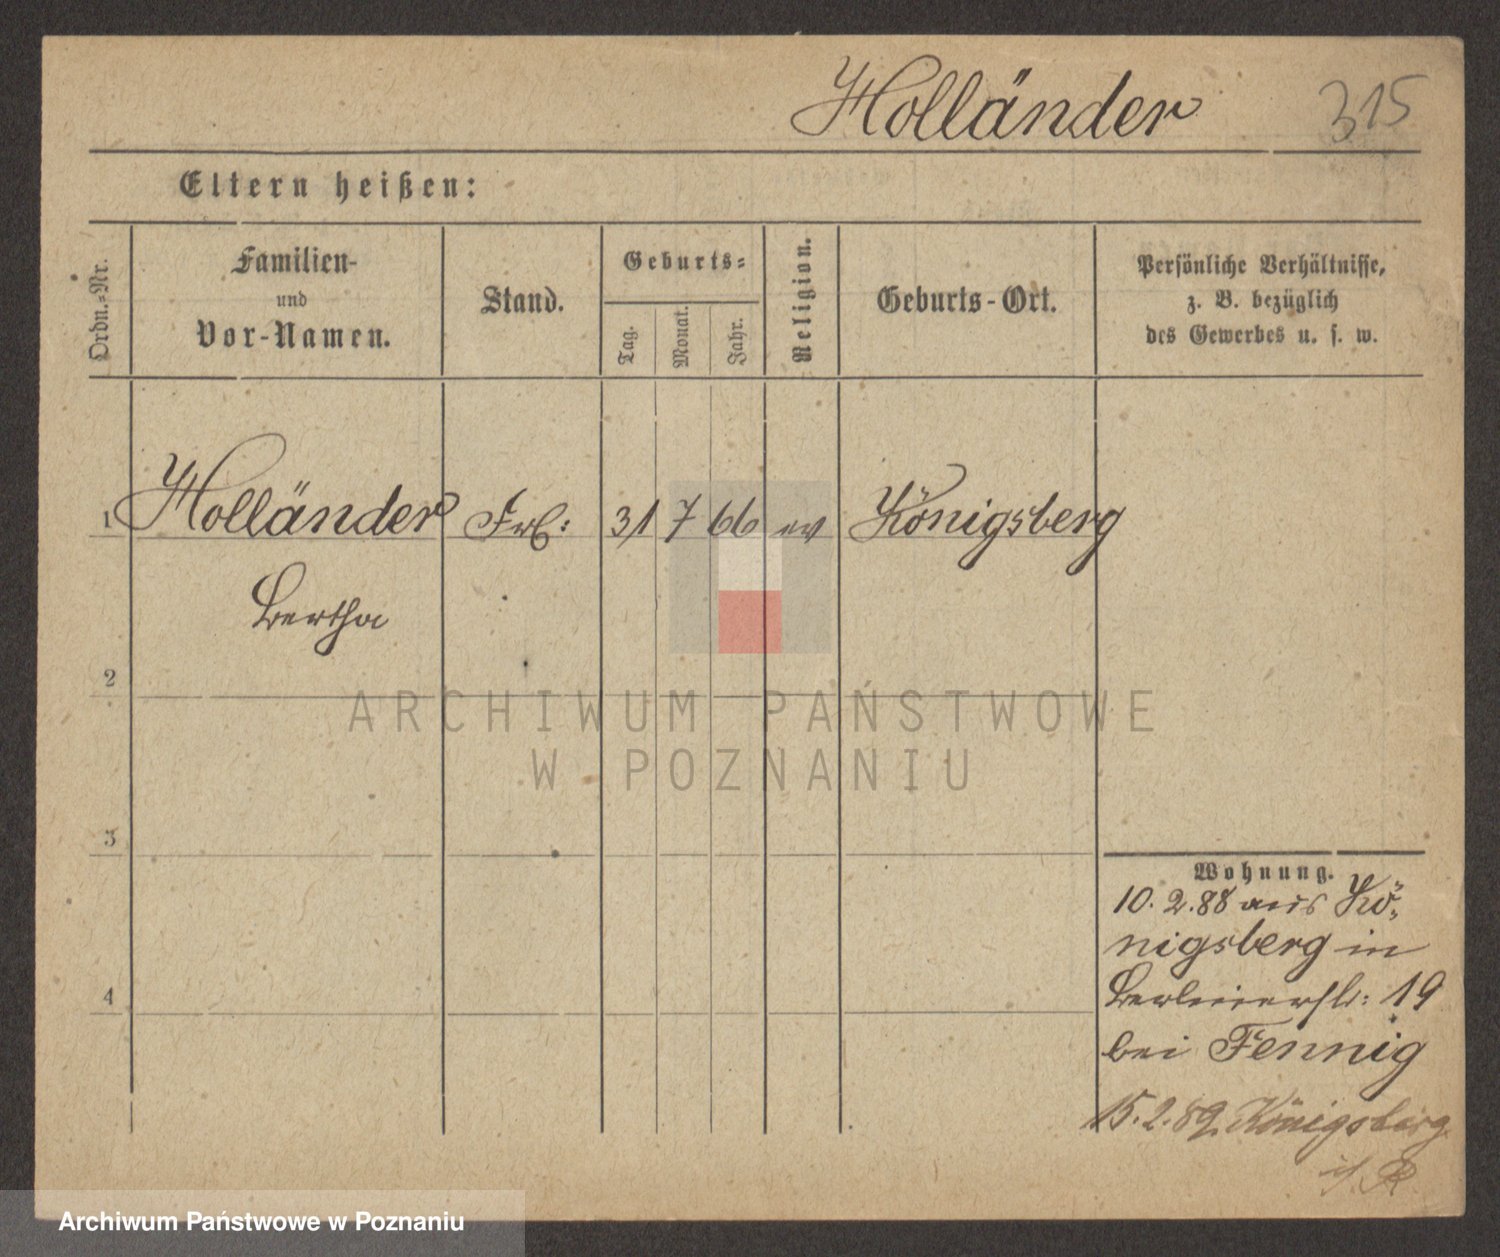 Holländer 315
Eltern heißen:
Ordn.=Nr.
Familien-
und
Vor-Namen.
Stand.
Geburts=
Tag.
Monat.
Jahr.
Religion.
Geburts-Ort.
Persönliche Verhältnisse,
z. B. bezüglich
des Gewerbes u. s. w.
1 Holländer Frl: 31 7 66 ev Königsberg
Bertha
2
ARCHIWUM PAŃSTWOWE
W POZNANIU
3
Wohnung.
10.2.88 aus Kö-
nigsberg in
Berlinerstr: 19
4
bei Fennig
15.2.89. Königsberg
i/ R
Archiwum Państwowe w Poznaniu